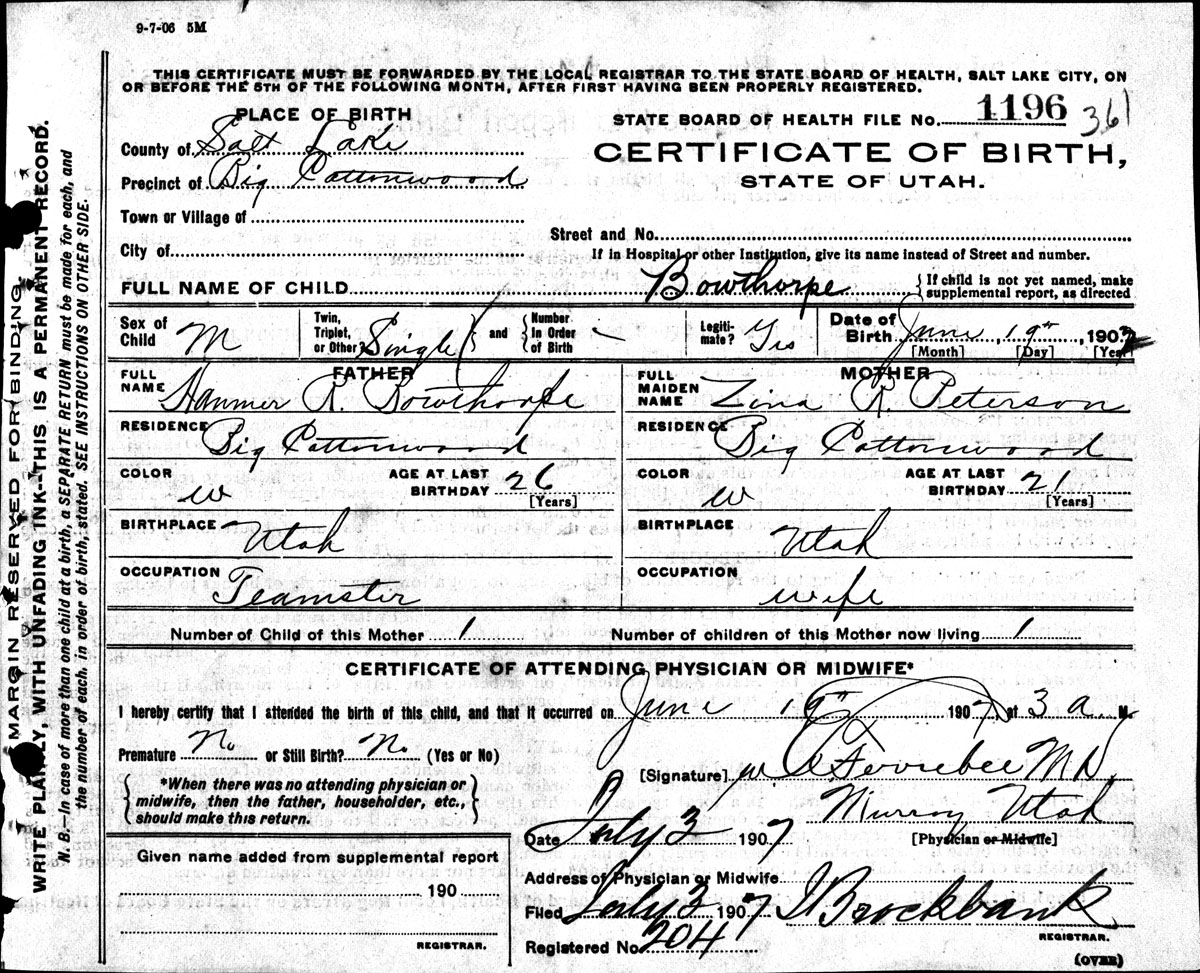 9-7-06 5M
THIS CERTIFICATE MUST BE FORWARDED BY THE LOCAL REGISTRAR TO THE STATE BOARD OF HEALTH, SALT LAKE CITY, ON
OR BEFORE THE 5TH OF THE FOLLOWING MONTH, AFTER FIRST HAVING BEEN PROPERLY REGISTERED.
PLACE OF BIRTH
STATE BOARD OF HEALTH FILE NO. 1196 361
County of Salt Lake
CERTIFICATE OF BIRTH,
Precinct of Big Cottonwood
STATE OF UTAH.
Town or Village of
Street and No.
City of
If in Hospital or other Institution, give its name instead of Street and number.
FULL NAME OF CHILD Bowthorpe { If child is not yet named, make
supplemental report, as directed
Sex of Child M
Twin, Triplet, or Other? Single } and { Number In Order of Birth -
Legiti-mate? Yes
Date of Birth June 19th, 1907
[Month] [Day] [Year]
FATHER
FULL NAME Hammer R. Bowthorpe
MOTHER
FULL MAIDEN NAME Zina R. Peterson
RESIDENCE Big Cottonwood
RESIDENCE Big Cottonwood
COLOR w AGE AT LAST BIRTHDAY 26 [Years]
COLOR w AGE AT LAST BIRTHDAY 21 [Years]
BIRTHPLACE Utah
BIRTHPLACE Utah
OCCUPATION Teamster
OCCUPATION wife
Number of Child of this Mother 1 Number of children of this Mother now living 1
CERTIFICATE OF ATTENDING PHYSICIAN OR MIDWIFE*
I hereby certify that I attended the birth of this child, and that it occurred on June 19th 1907, at 3 a. M
Premature No or Still Birth? No (Yes or No)
[Signature] M.D.
{ *When there was no attending physician or
midwife, then the father, householder, etc.,
should make this return. }
Murray Utah
Date July 3 1907 [Physician or Midwife]
Given name added from supplemental report
190
REGISTRAR.
Address of Physician or Midwife
Filed July 3 1907 J Brockbank
REGISTRAR.
Registered No. 204
(OVER)
MARGIN RESERVED FOR BINDING.
WRITE PLAINLY, WITH UNFADING INK—THIS IS A PERMANENT RECORD.
N. B.—In case of more than one child at a birth, a SEPARATE RETURN must be made for each, and
the number of each, in order of birth, stated. SEE INSTRUCTIONS ON OTHER SIDE.